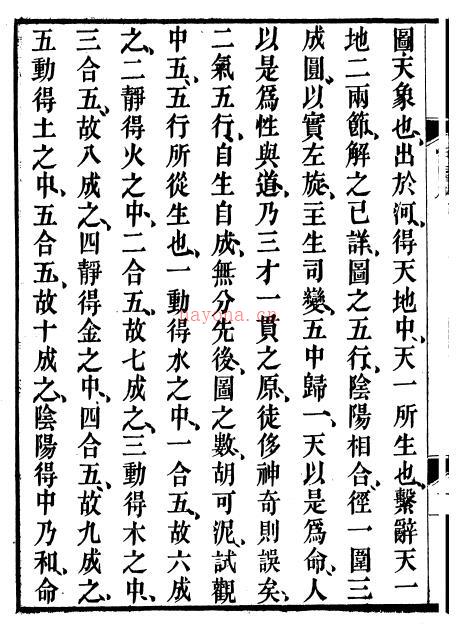 圖天象也、出於河、得天地中、天一所生也、繫辭天一
地二兩節、解之已詳、圖之五行、陰陽相合、徑一圍三
成圓、以實左旋、主生司變、五中歸一、天以是爲命、人
以是爲性與道、乃三才一貫之原、徒侈神奇則誤矣、
二氣五行、自生自成、無分先後、圖之數、胡可泥、試觀
中五、五行所從生也、一動得水之中、一合五、故六成
之、二靜得火之中、二合五、故七成之、三動得木之中、
三合五、故八成之、四靜得金之中、四合五、故九成之、
五動得土之中、五合五、故十成之、陰陽得中乃和、命
nayona.cn